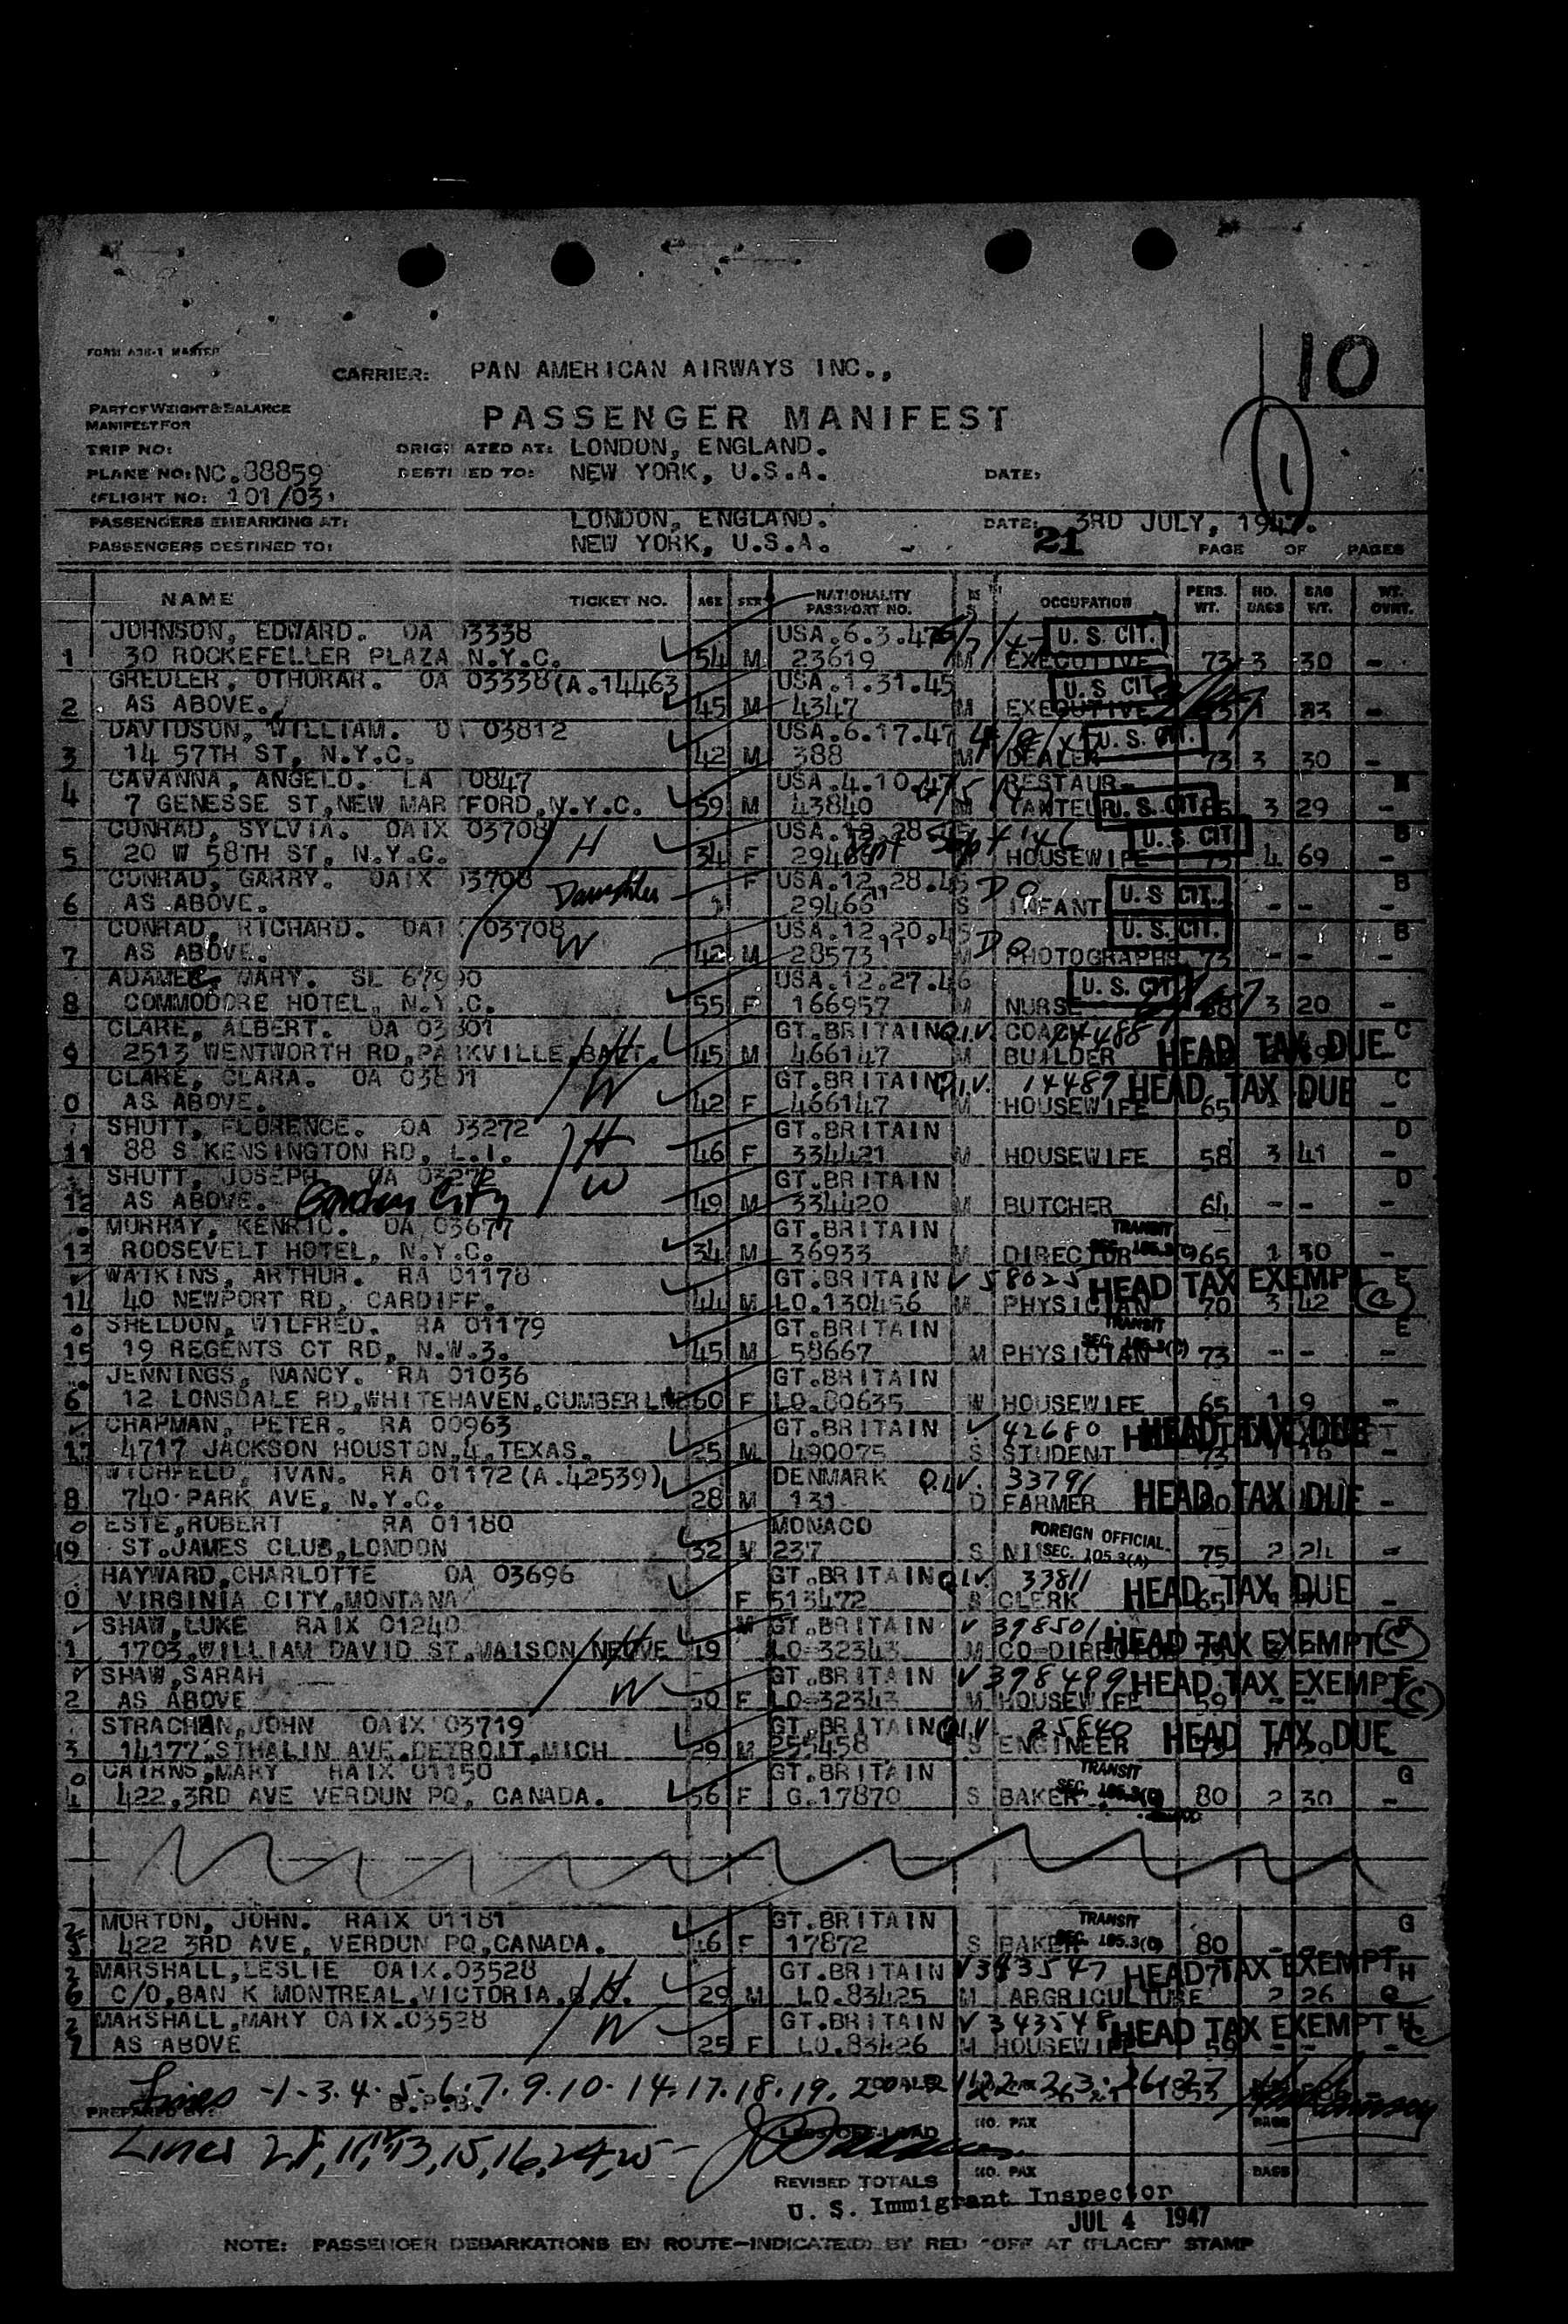 10
FORM A3E-1 MASTER
CARRIER: PAN AMERICAN AIRWAYS INC.,
PART OF WEIGHT & BALANCE
MANIFEST FOR
PASSENGER MANIFEST
1
TRIP NO: ORIGINATED AT: LONDON, ENGLAND.
PLANE NO: NC.88859 DESTINED TO: NEW YORK, U.S.A. DATE:
(FLIGHT NO: 101/03)
PASSENGERS EMBARKING AT: LONDON, ENGLAND. DATE: 3RD JULY, 1947.
PASSENGERS DESTINED TO: NEW YORK, U.S.A. 21 PAGE OF PAGES
NAME TICKET NO. AGE SEX NATIONALITY PASSPORT NO. M S OCCUPATION PERS. WT. NO. BAGS BAG WT. WT. OVRT.
JOHNSON, EDWARD. OA 03338 USA.6.3.47 U. S. CIT.
1 30 ROCKEFELLER PLAZA N.Y.C. 54 M 23619 M EXECUTIVE 73 3 30 -
GREULER, OTHORAR. OA 03338(A.14463 USA.1.31.45 U. S CIT
2 AS ABOVE. 45 M 4347 M EXECUTIVE -
DAVIDSON, WILLIAM. 03812 USA.6.17.47 U. S. CIT.
3 14 57TH ST, N.Y.C. 42 M 388 M DEALER 73 3 30 -
CAVANNA, ANGELO. LA 0847 USA.4.10.47 RESTAUR-
4 7 GENESSE ST,NEW HARTFORD,N.Y.C. 59 M 43840 M TANTEUR U. S. CIT 3 29 -
CONRAD, SYLVIA. OAIX 03708 H USA.12.28 U. S. CIT B
5 20 W 58TH ST, N.Y.C. 34 F HOUSEWIFE 4 69 -
CONRAD, GARRY. OAIX 03708 Daughter F USA.12.28.45 Do U. S CIT. B
6 AS ABOVE. 29466 S INFANT - - -
CONRAD, RICHARD. OAI 03708 W USA.12.20.45 Do U. S. CIT. B
7 AS ABOVE. 42 M 28573 M PHOTOGRAPHS 73 - - -
MARY. SL 67990 USA.12.27.46 U. S. CIT
8 COMMODORE HOTEL, N.Y.C. 55 F 166957 M NURSE 3 20 -
CLARE, ALBERT. OA 03801 H GT.BRITAIN Q.I.V. COACH 14488 HEAD TAX DUE C
9 2513 WENTWORTH RD,PARKVILLE,BALT. 45 M 466147 M BUILDER
CLARE, CLARA. OA 03801 W GT.BRITAIN Q.I.V. 14487 HEAD TAX DUE C
0 AS ABOVE. 42 F 466147 M HOUSEWIFE 65 -
SHUTT, FLORENCE. OA 03272 H GT.BRITAIN D
11 88 S KENSINGTON RD, L.I. 46 F 334421 M HOUSEWIFE 58 3 41 -
SHUTT, JOSEPH. OA 03272 W GT.BRITAIN D
12 AS ABOVE. Garden City 49 M 334420 M BUTCHER 64 - - -
MURRAY, KENRIC. OA 03677 GT.BRITAIN TRANSIT
13 ROOSEVELT HOTEL, N.Y.C. 34 M 36933 M DIRECTOR SEC. 105.3(C) 65 1 30 -
WATKINS, ARTHUR. RA 01178 GT.BRITAIN V 58025 HEAD TAX EXEMPT E
14 40 NEWPORT RD, CARDIFF. 44 M LO.130456 M PHYSICIAN 70 3 42
SHELDON, WILFRED. RA 01179 GT.BRITAIN TRANSIT E
15 19 REGENTS CT RD, N.W.3. 45 M 58667 M PHYSICIAN SEC. 105.3(C) 73 - - -
JENNINGS, NANCY. RA 01036 GT.BRITAIN
6 12 LONSDALE RD,WHITEHAVEN,CUMBERLND 60 F LO.80635 W HOUSEWIFE 65 1 9 -
CHAPMAN, PETER. RA 00963 GT.BRITAIN V 42680 HEAD TAX DUE
17 4717 JACKSON HOUSTON,4,TEXAS. 25 M 490075 S STUDENT 73 16 -
IVAN. RA 01172(A.42539) DENMARK Q.I.V. 33791 HEAD TAX DUE
8 740 PARK AVE, N.Y.C. 28 M 131 D FARMER -
ESTE,ROBERT RA 01180 MONACO FOREIGN OFFICIAL
19 ST.JAMES CLUB,LONDON 32 M 237 S SEC. 105.3(A) 75 2 24 -
HAYWARD,CHARLOTTE OA 03696 GT.BRITAIN Q.I.V. 33811 HEAD TAX DUE
0 VIRGINIA CITY,MONTANA F 513472 S CLERK 65 -
SHAW,LUKE RAIX 01240 H M GT.BRITAIN V 398501 HEAD TAX EXEMPT
1 1703,WILLIAM DAVID ST.MAISON NEUVE 49 LO-32343 M CO-DIRECTOR
SHAW,SARAH W GT.BRITAIN V 398499 HEAD TAX EXEMPT
2 AS ABOVE 50 F LO-32343 M HOUSEWIFE 59
STRACHAN,JOHN OAIX 03719 GT.BRITAIN Q.I.V. 25840 HEAD TAX DUE
3 14177,STHALIN AVE,DETROIT,MICH 29 M 255458 S ENGINEER
CAIRNS,MARY RAIX 01150 GT.BRITAIN TRANSIT G
4 422,3RD AVE VERDUN PQ, CANADA. 56 F G.17870 S BAKER SEC. 105.3(C) 80 2 30 -
MORTON, JOHN. RAIX 01181 GT.BRITAIN TRANSIT G
25 422 3RD AVE, VERDUN PQ,CANADA. 46 F 17872 S BAKER SEC. 105.3(C) 80 -
MARSHALL,LESLIE OAIX.03528 H. GT.BRITAIN V 343547 HEAD TAX EXEMPT H
26 C/O,BAN K MONTREAL,VICTORIA, 29 M LO.83425 M ABGRICULTURE 2 26
MARSHALL,MARY OAIX.03528 W GT.BRITAIN V 343548 HEAD TAX EXEMPT H
27 AS ABOVE 25 F LO.83426 M HOUSEWIFE 59 - -
Lines -1-3.4.5-6.7.9.10-14.17.18.19.
PREPARED BY: B.P.B. NO. PAX BAGS
Lines 2,8,11,12,13,15,16,24,25-
REVISED TOTALS NO. PAX BAGS
U. S. Immigrant Inspector
JUL 4 1947
NOTE: PASSENGER DEBARKATIONS EN ROUTE—INDICATE(D) BY RED "OFF AT (PLACE)" STAMP